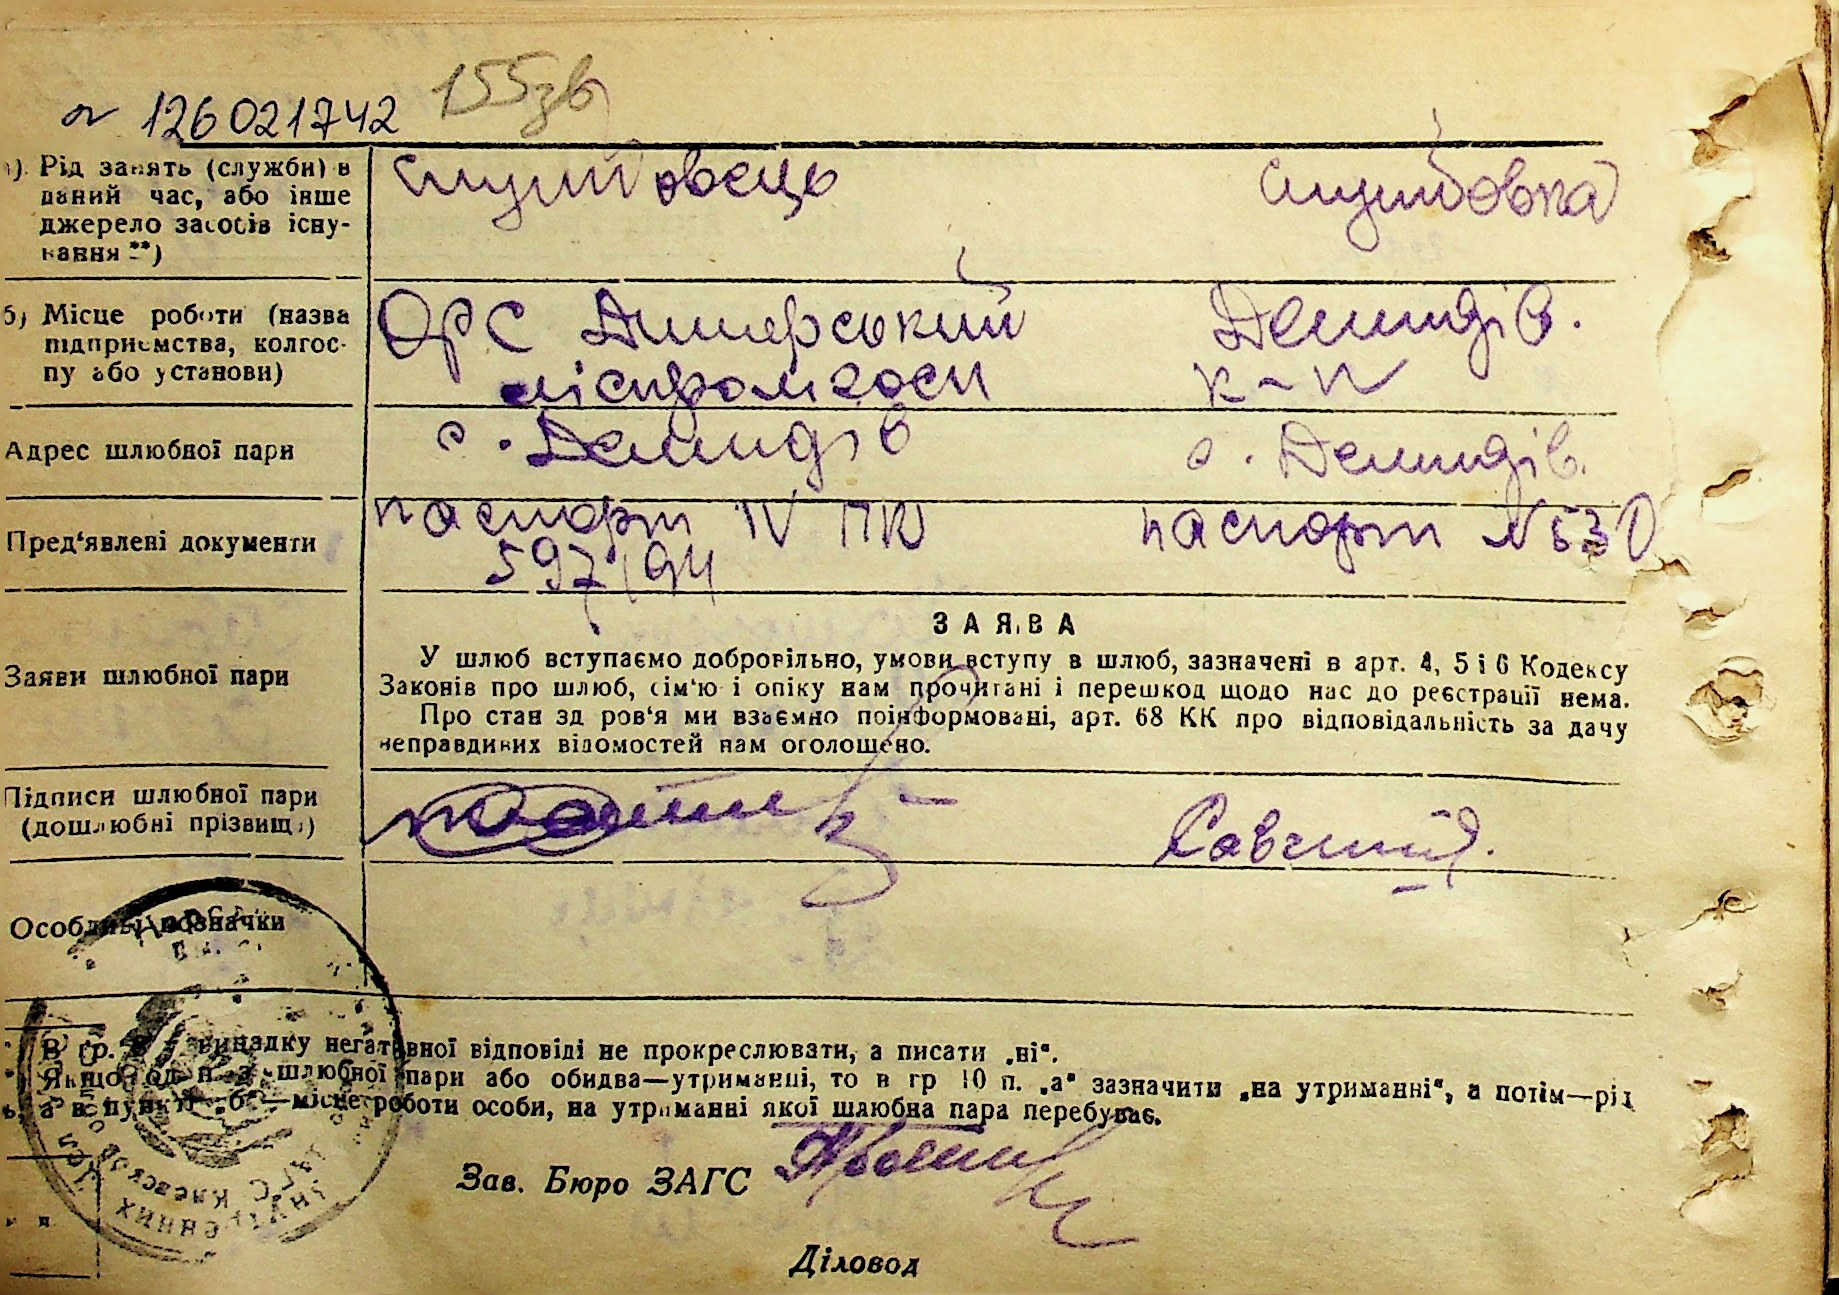 № 126021742 155зв
а). Рід занять (служби) в даний час, або інше джерело засобів існування **)
службовець
службовка
б) Місце роботи (назва підприємства, колгоспу або установи)
ОРС Димерський
ліспромгосп
Демидів.
к-п
Адрес шлюбної пари
с. Демидів
с. Демидів.
Пред'явлені документи
паспорт IV ПК
597194
паспорт № 530
ЗАЯВА
Заяви шлюбної пари
У шлюб вступаємо добровільно, умови вступу в шлюб, зазначені в арт. 4, 5 і 6 Кодексу
Законів про шлюб, сім'ю і опіку нам прочитані і перешкод щодо нас до реєстрації нема.
Про стан здоров'я ми взаємно поінформовані, арт. 68 КК про відповідальність за дачу
неправдивих відомостей нам оголошено.
Підписи шлюбної пари
(дошлюбні прізвища)
Особливі позначки
В гр. випадку негативної відповіді не прокреслювати, а писати „ні“.
Якщо од шлюбної пари або обидва—утриманці, то в гр 10 п. „а“ зазначити „на утриманні“, а потім—рід
а в пункті „б“—місце роботи особи, на утриманні якої шлюбна пара перебуває.
Зав. Бюро ЗАГС
Діловод